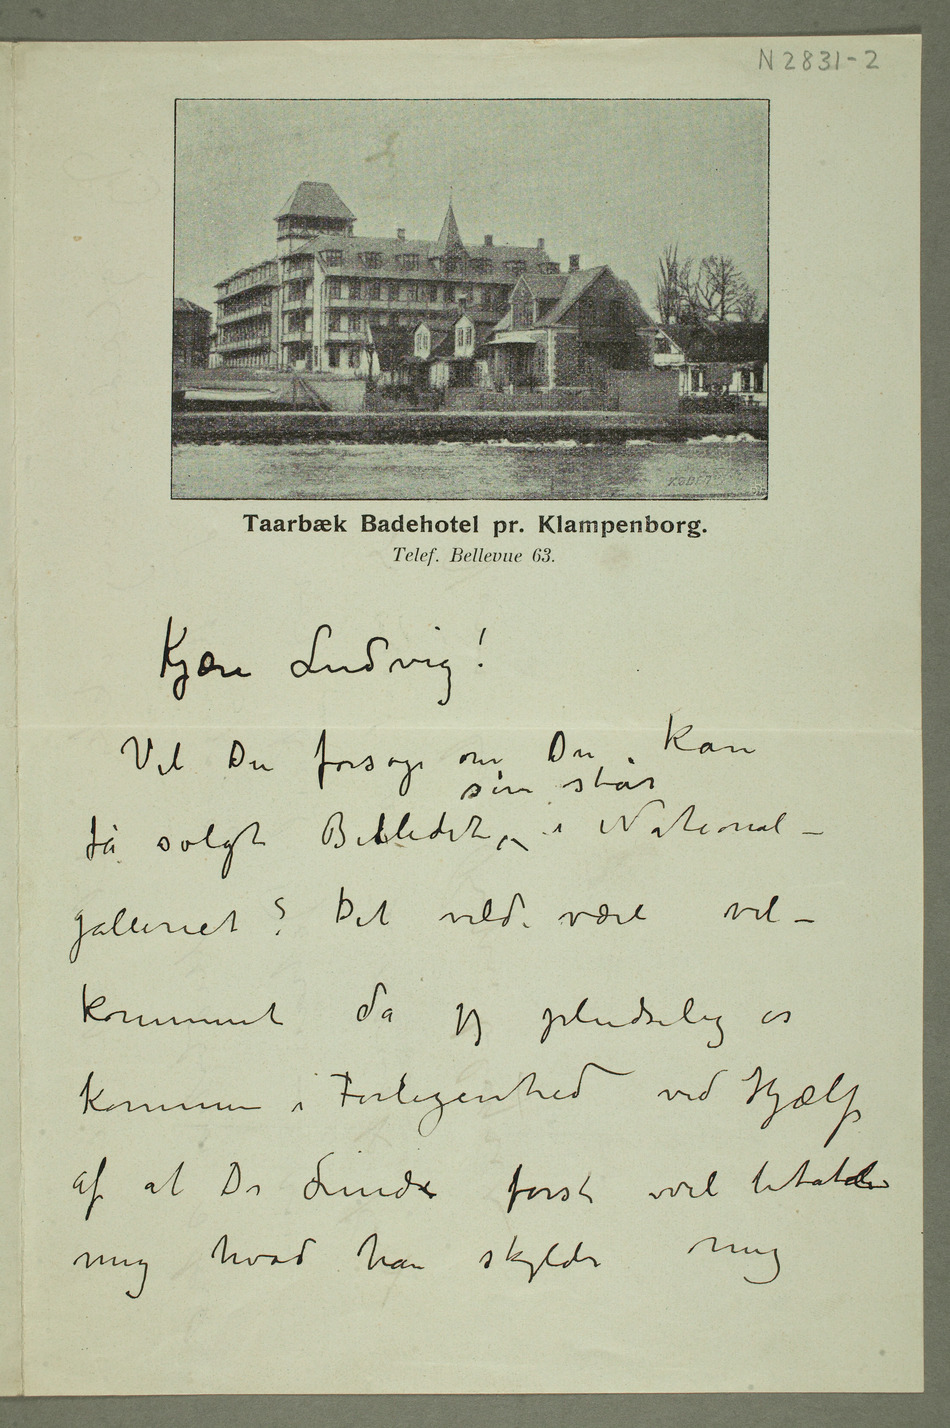 N 2831-2
Taarbæk Badehotel pr. Klampenborg.
Telef. Bellevue 63.
Kjære Ludvig!
Vil Du forsøge om Du kan
som står
få solgt Billedet, i National-
galleriet? Det vilde være vel-
komment da jeg pludselig er
kommen i Forlegenhed ved Hjælp
af at Dr Linde først vil betale
mig hvad han skylder mig